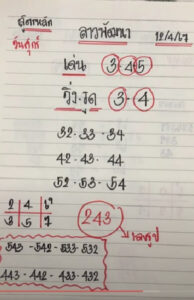 สูตรหลัก ลาวพัฒนา 12/4/67
วันศุกร์
เด่น 3 4 5
วิ่ง.รูด 3 - 4
32 - 33 - 34
42 - 43 - 44
52 - 53 - 54
2 4 6
3 5 7
243
เลขธูป
543 - 542 - 533 - 532
443 - 442 - 433 - 432